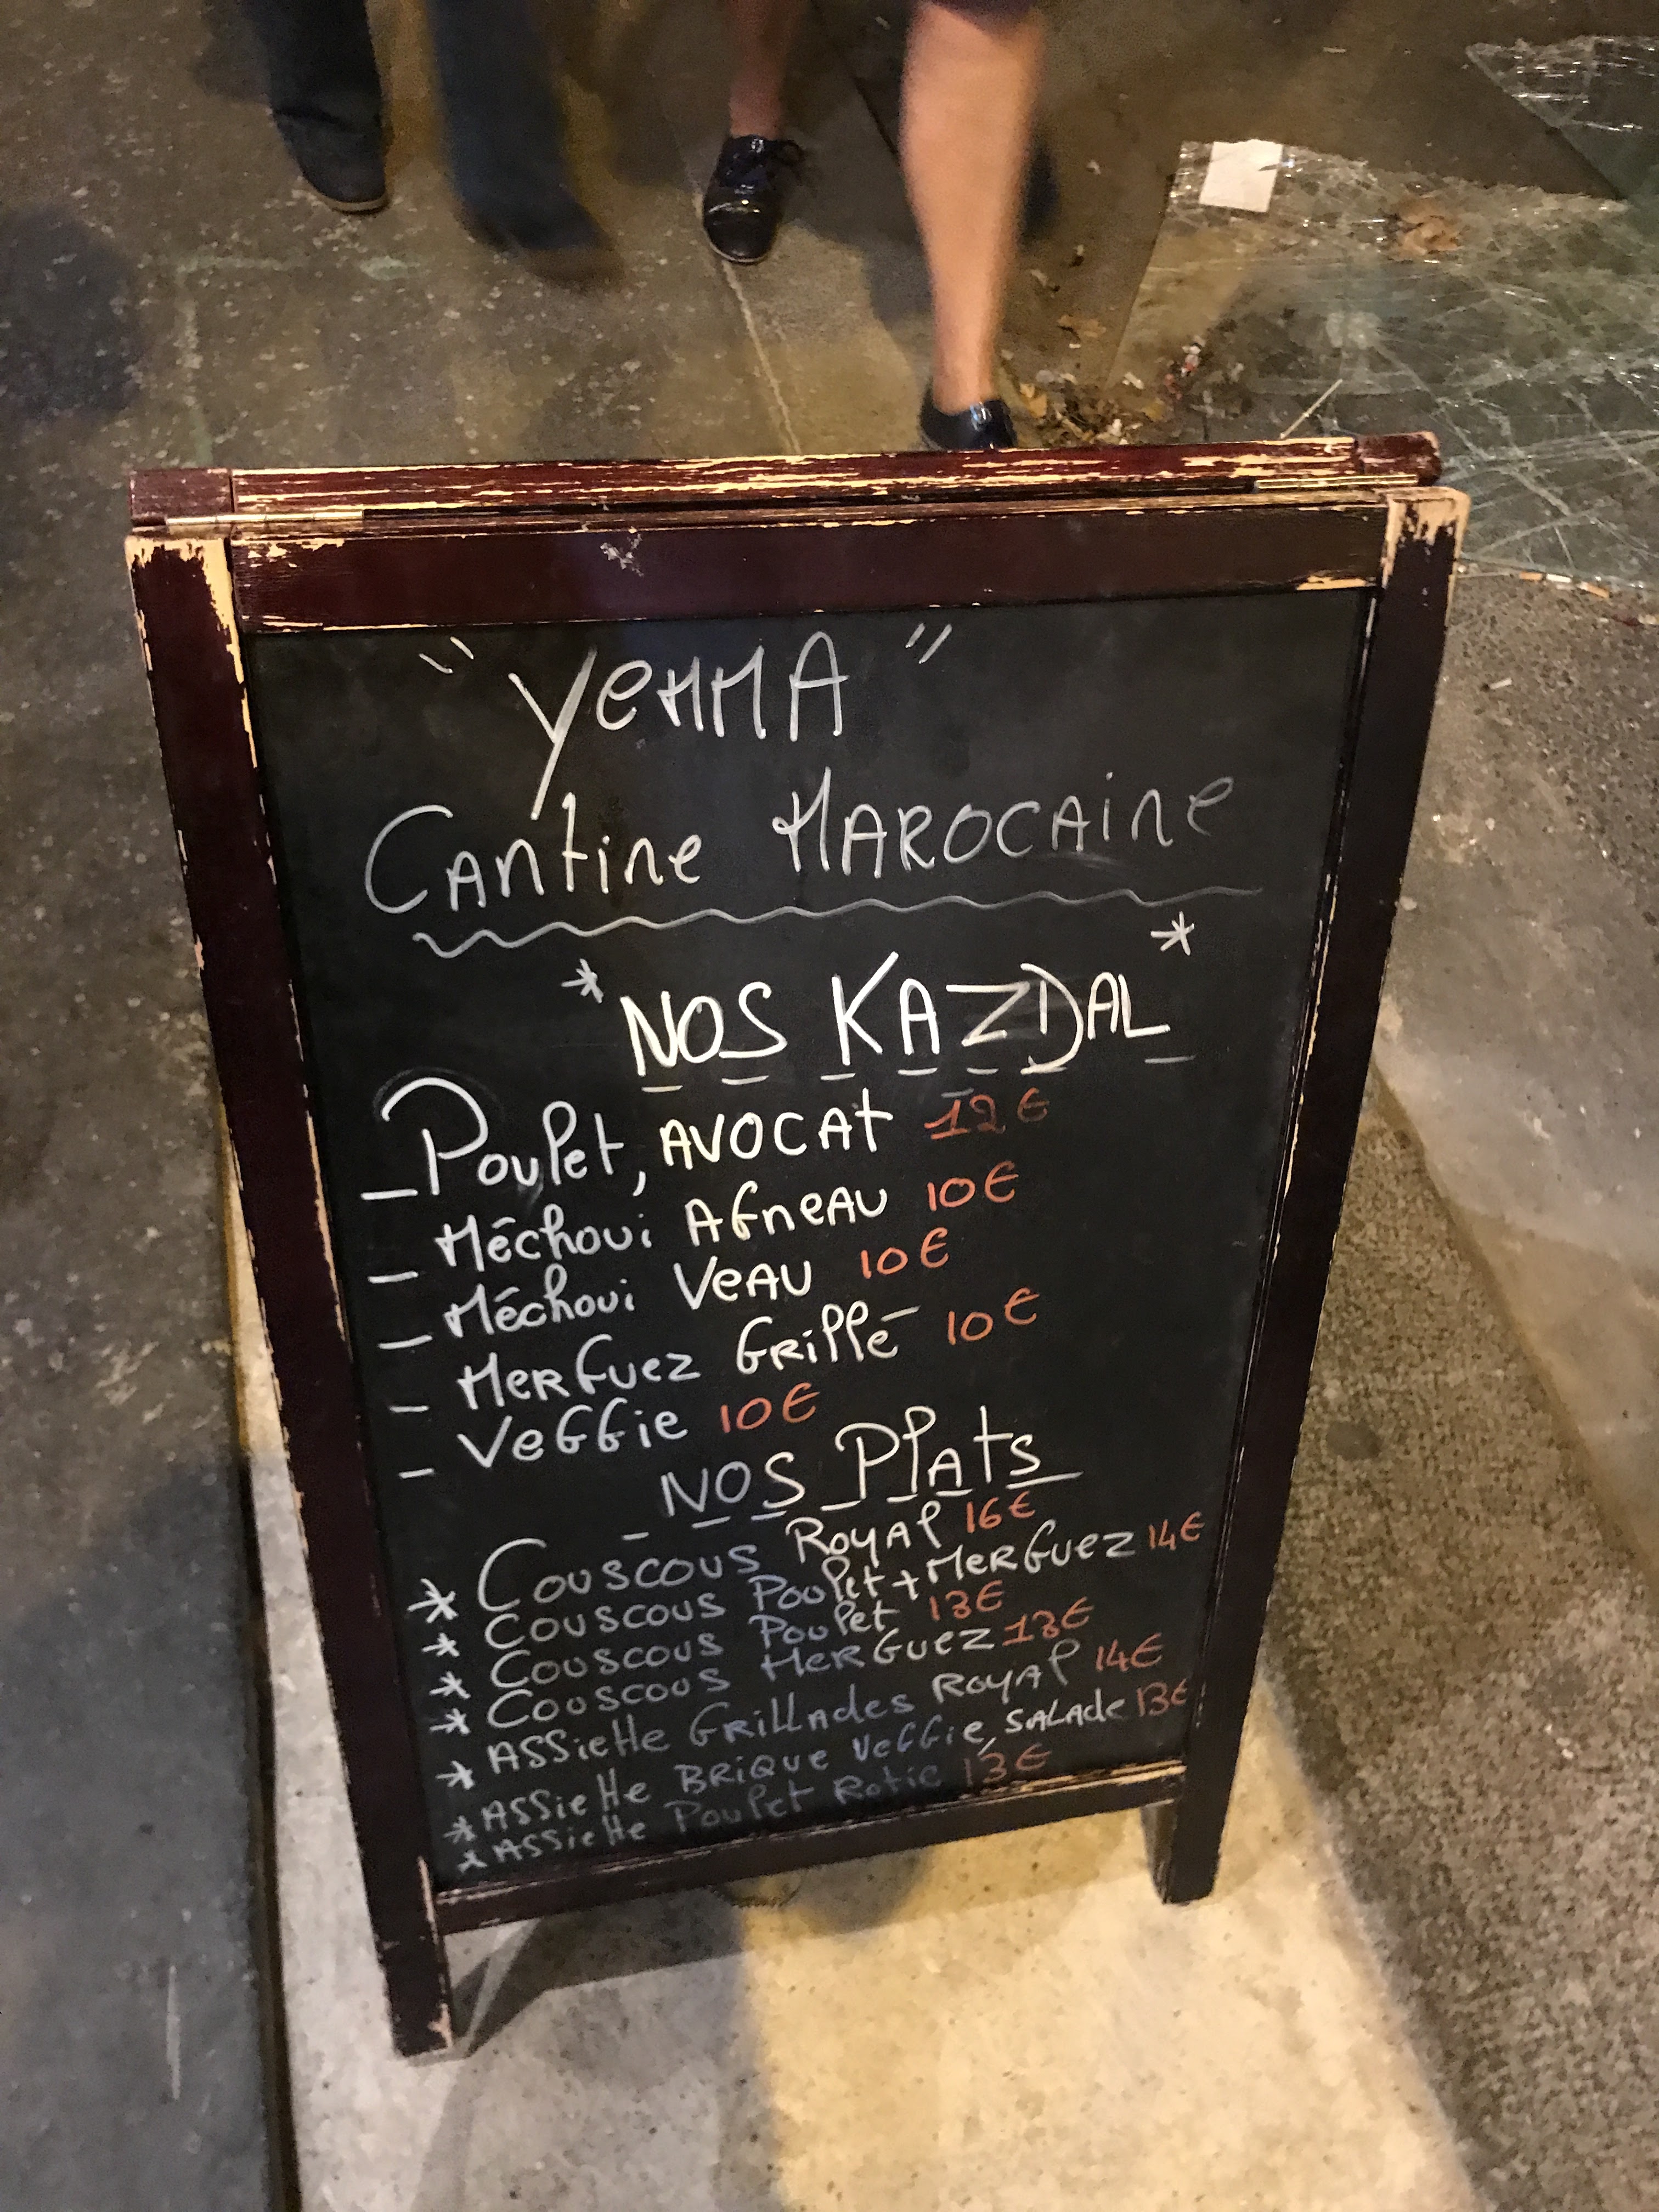 "YEMMA"
Cantine MAROCAine
* NOS KAZDAL *
_ Poulet, AVOCAt 12€
_ Méchoui AGneAU 10€
_ Méchoui VeAU 10€
_ MerGuez Grillé 10€
_ VeGGie 10€
NOS Plats
* Couscous Royal 16€
* Couscous Poulet + MerGuez 14€
* Couscous Poulet 13€
* Couscous MerGuez 13€
* Assiette Grillades Royal 14€
* Assiette Brique VeGGie, salade 13€
* Assiette Poulet Rotie 13€